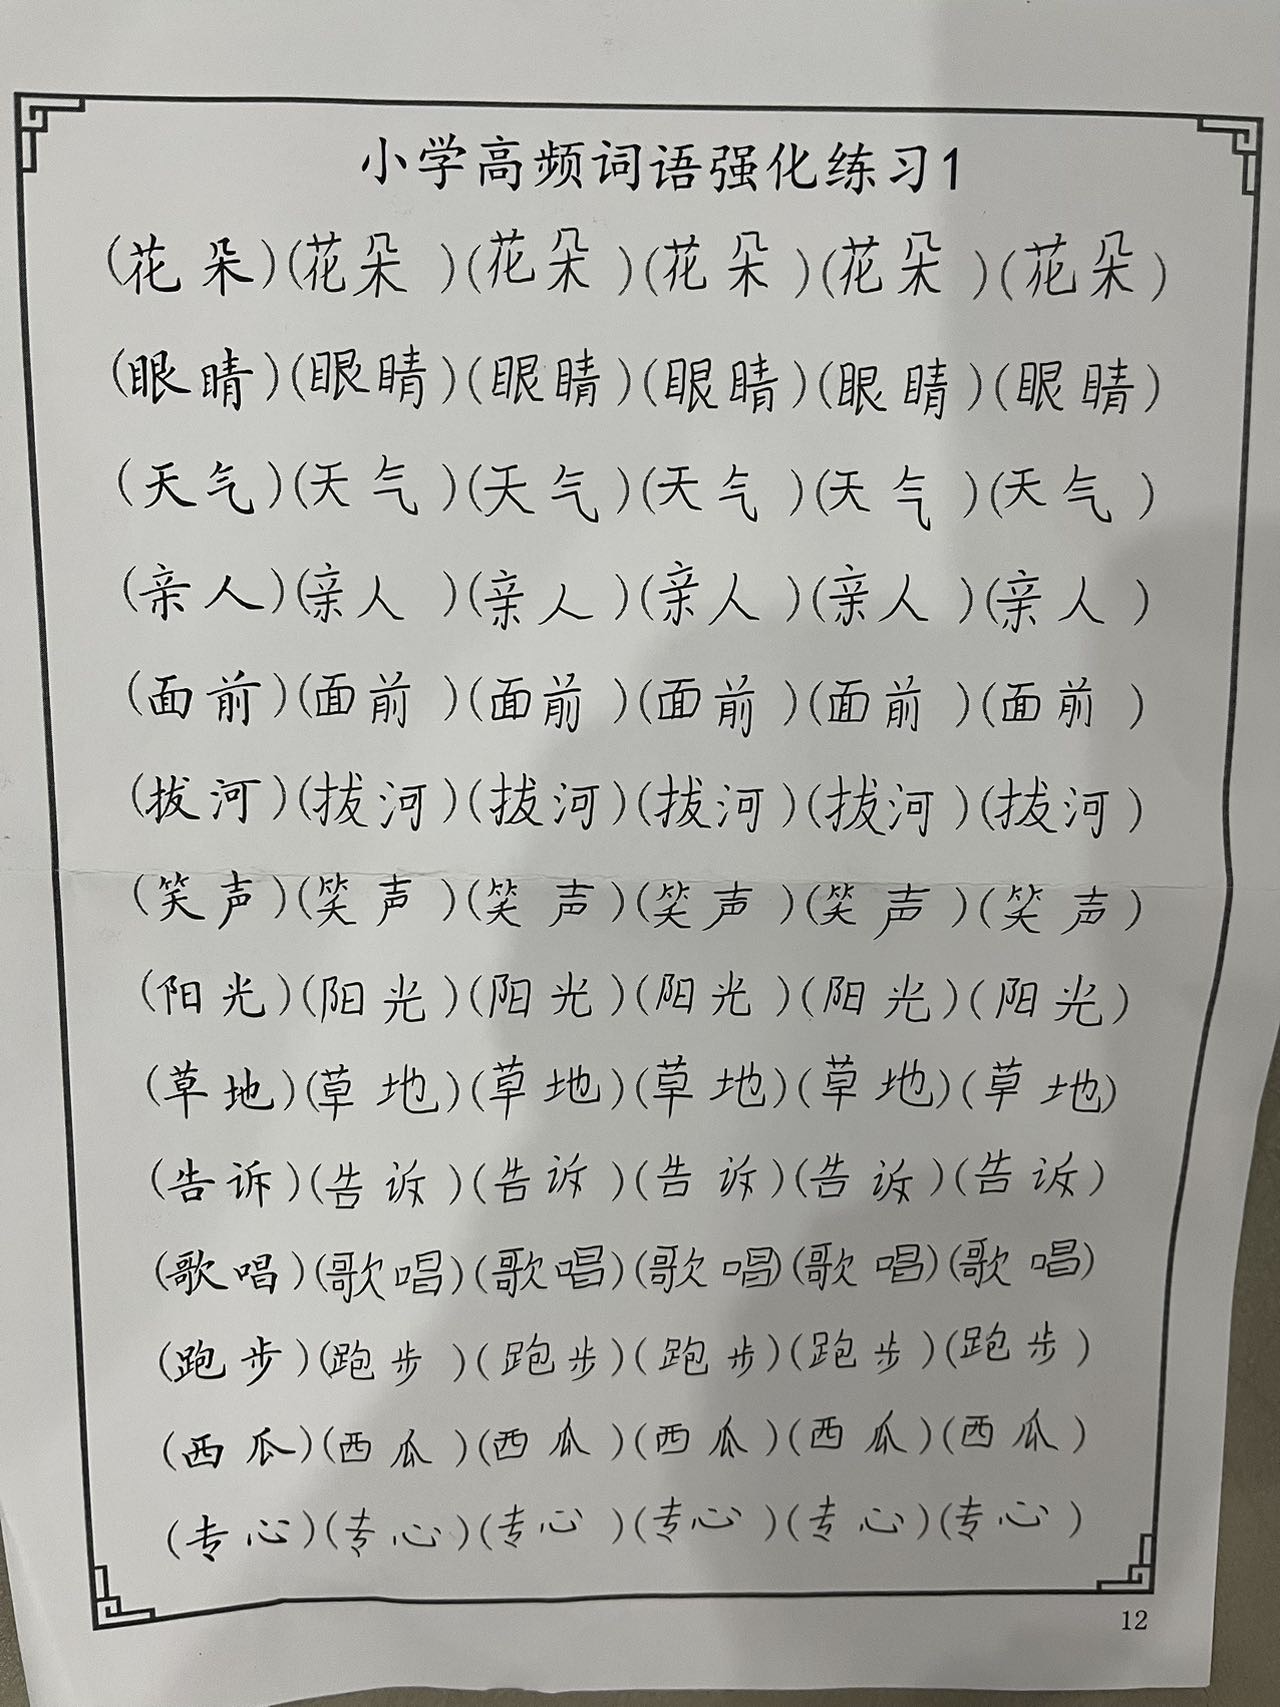 小学高频词语强化练习1
(花朵)(花朵)(花朵)(花朵)(花朵)(花朵)
(眼睛)(眼睛)(眼睛)(眼睛)(眼睛)(眼睛)
(天气)(天气)(天气)(天气)(天气)(天气)
(亲人)(亲人)(亲人)(亲人)(亲人)(亲人)
(面前)(面前)(面前)(面前)(面前)(面前)
(拔河)(拔河)(拔河)(拔河)(拔河)(拔河)
(笑声)(笑声)(笑声)(笑声)(笑声)(笑声)
(阳光)(阳光)(阳光)(阳光)(阳光)(阳光)
(草地)(草地)(草地)(草地)(草地)(草地)
(告诉)(告诉)(告诉)(告诉)(告诉)(告诉)
(歌唱)(歌唱)(歌唱)(歌唱)(歌唱)(歌唱)
(跑步)(跑步)(跑步)(跑步)(跑步)(跑步)
(西瓜)(西瓜)(西瓜)(西瓜)(西瓜)(西瓜)
(专心)(专心)(专心)(专心)(专心)(专心)
12